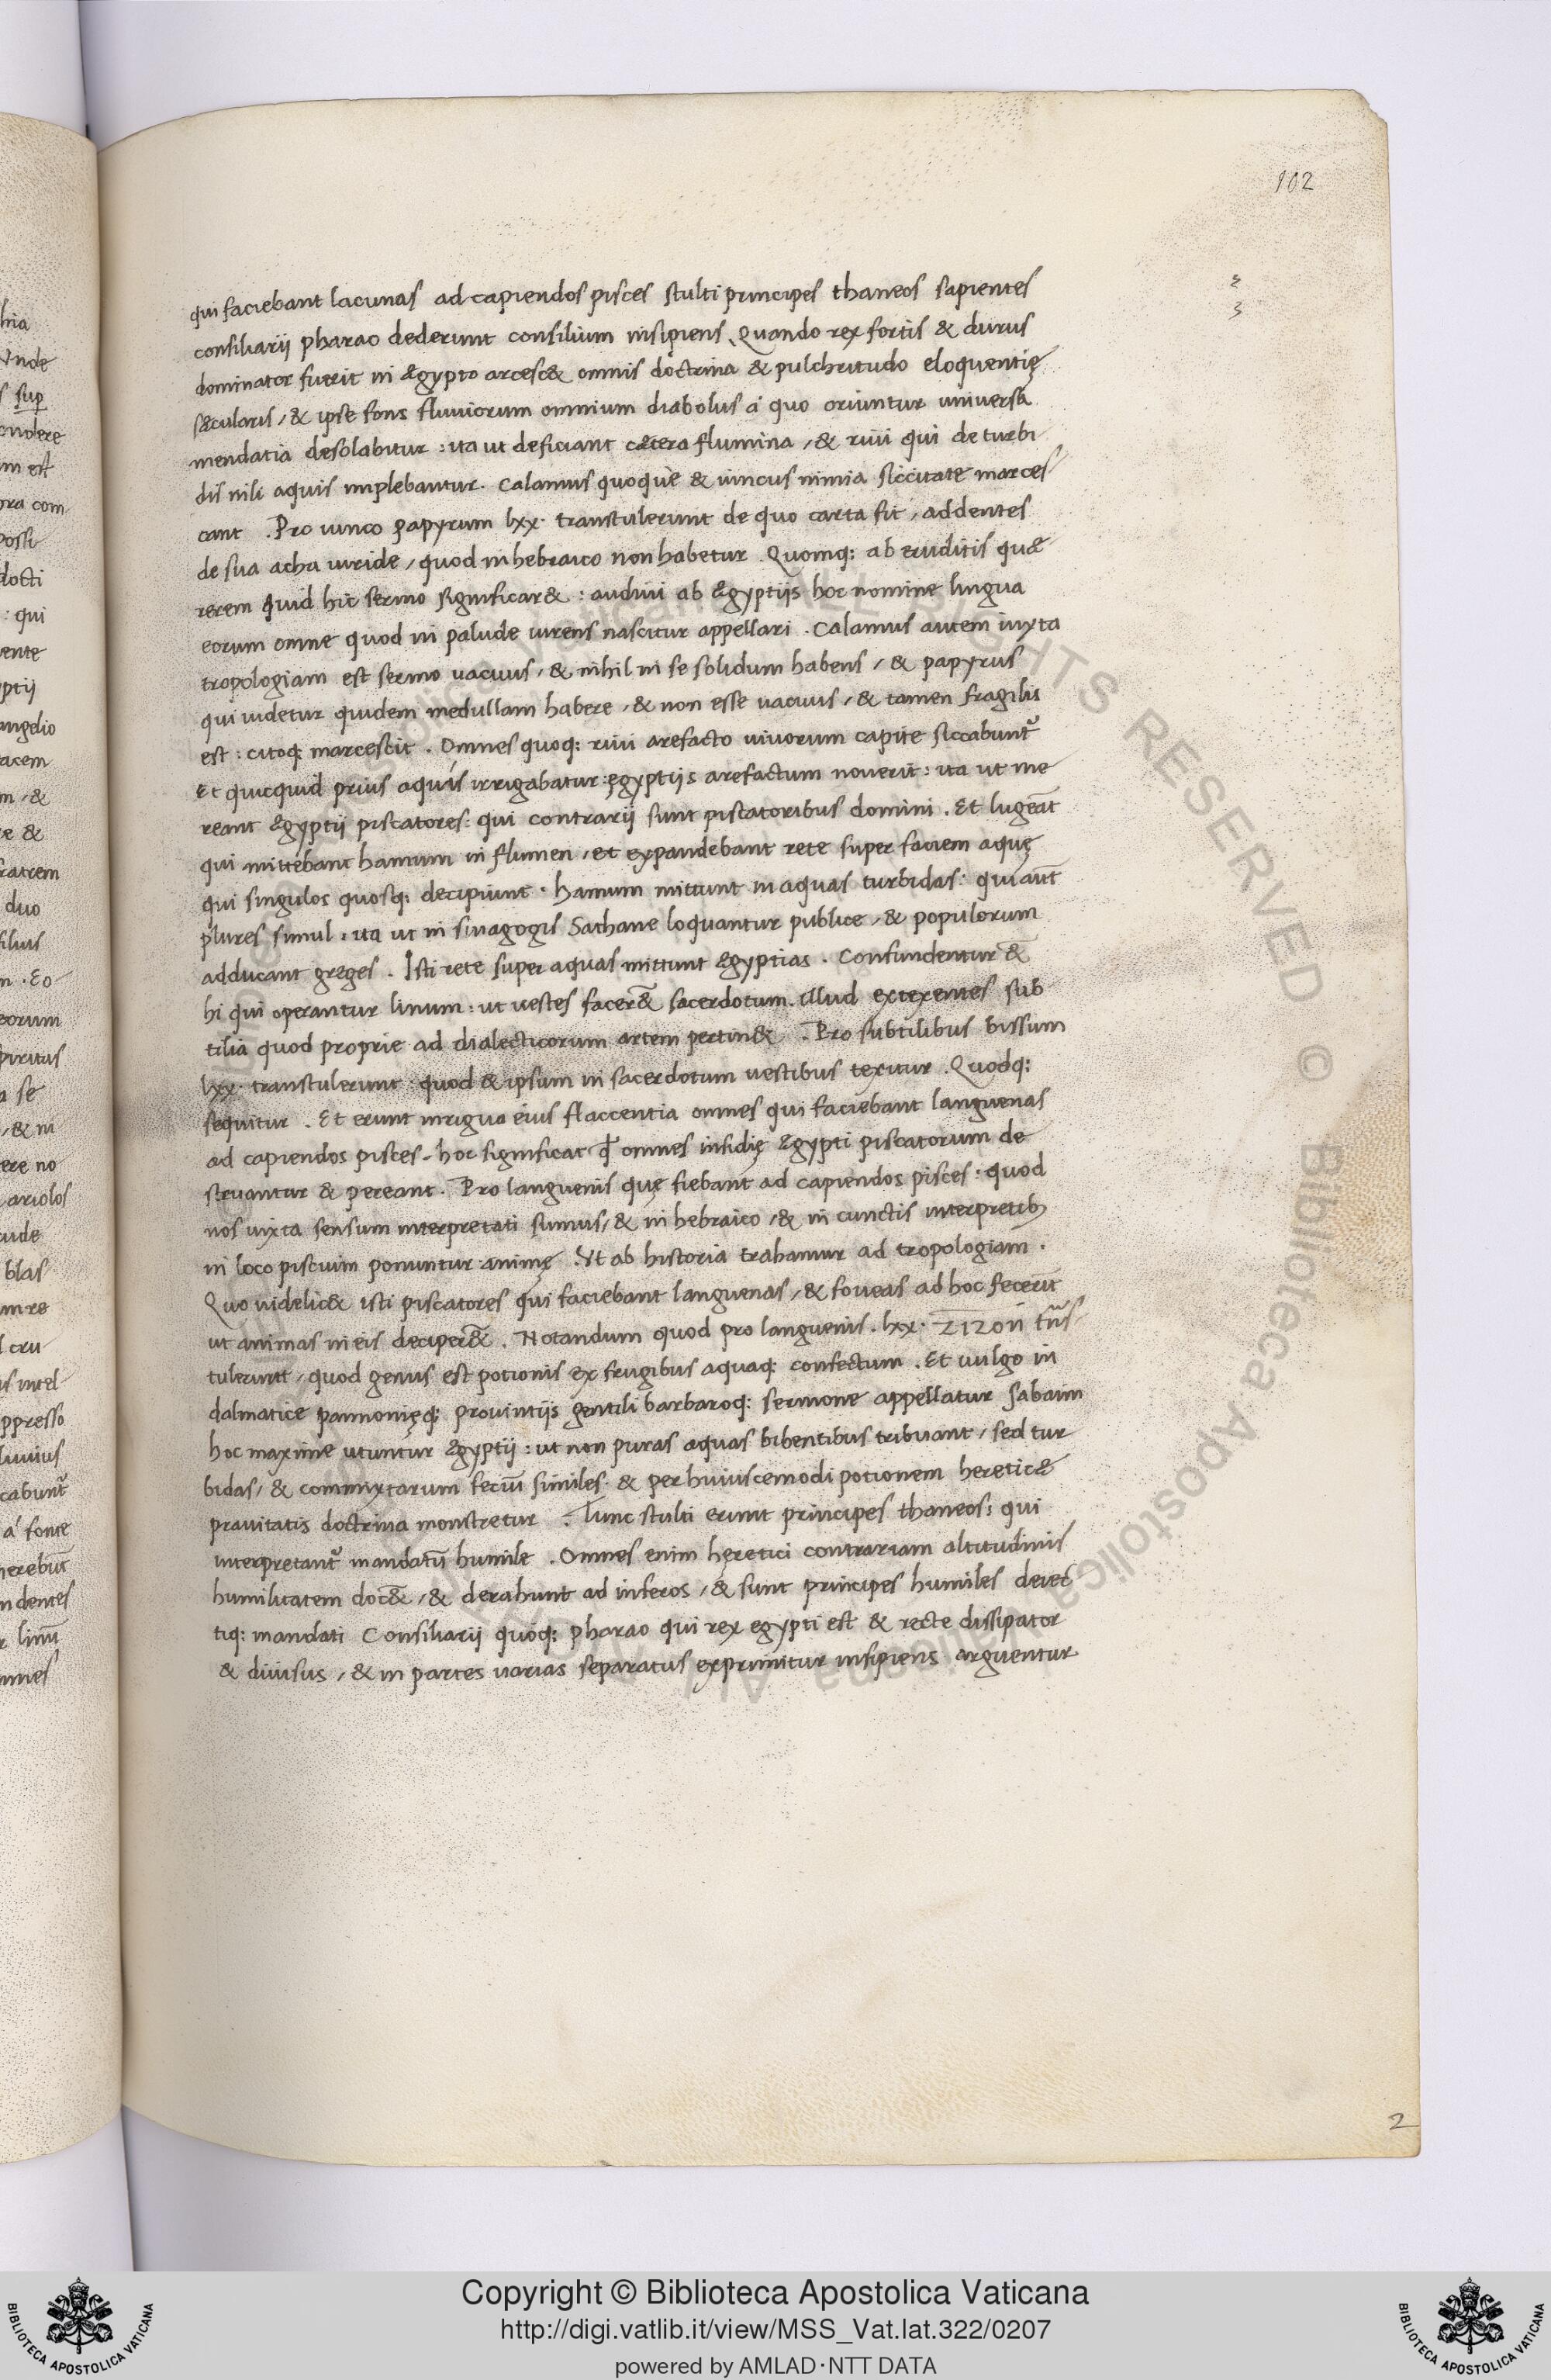 102
qui faciebant lacunas ad capiendos pisces stulti principes thaneos sapientes
consiliarij pharao dederunt consilium insipiens. Quando rex fortis & durus
dominator fuerit in ægypto arcesc& omnis doctrina & pulchritudo eloquentię
sæcularis, & ipse fons fluuiorum omnium diabolus á quo oriuntur universa
mendatia desolabitur : ita ut deficiant cætera flumina, & riui qui de turbi
dis nili aquis implebantur. Calamus quoque & iuncus nimia siccitate marces
cant . Pro iunco papyrum lxx. transtulerunt de quo carta fit, addentes
de sua acha uiride, quod in hebraico non habetur. Quomq: ab eruditis quæ
rerem quid hic sermo significar& : audiui ab ægyptijs hoc nomine lingua
eorum omne quod in palude uirens nascitur appellari . Calamus autem iuxta
tropologiam est sermo uacuus, & nihil in se solidum habens, & papyrus
qui uidetur quidem medullam habere, & non esse uacuus, & tamen fragilis
est : citoq: marcescit . Omnes quoq: riui arefacto uiuorum capite siccabunt᷑
Et quicquid prius aquis irrigabatur: ęgyptijs arefactum nouerit : ita ut me
reant ægyptij piscatores: qui contrarij sunt piscatoribus domini . Et lugeāt
qui mittebant hamum in flumen, et expandebant rete super faciem aquę
qui singulos quosq: decipiunt . hamum mittunt in aquas turbidas: qui aūt
plures simul : ita ut in sinagogis Sathane loquantur publice, & populorum
adducant greges . Isti rete super aquas mittunt ægyptias . Confundentur &
hi qui operantur linum : ut uestes facer&̄ sacerdotum. illud extexentes sub
tilia quod proprie ad dialecticorum artem pertin& . Pro subtilibus bissum
lxx. transtulerunt : quod & ipsum in sacerdotum uestibus texitur . Quodq:
sequitur . Et erunt inrigua eius flaccentia omnes qui faciebant languenas
ad capiendos pisces. hoc significat ꝙ omnes insidię ægypti piscatorum de
struantur & pereant. Pro languenis quę fiebant ad capiendos pisces : quod
nos iuxta sensum interpretati sumus, & in hebraico, & in cunctis interpretib;
in loco piscium ponuntur animę . Ut ab historia trahamur ad tropologiam .
Quo uidelic& isti piscatores qui faciebant languenas, & foueas ad hoc fecerūt
ut animas in eis deciper&̄ . Notandum quod pro languenis . lxx. ZIZON tn̄s
tulerunt, quod genus est potionis ex frugibus aquaq: confectum . Et uulgo in
dalmatice pannonięq: prouintijs gentili barbaroq: sermone appellatur sabaim
hoc maxime utuntur ægyptij : ut non puras aquas bibentibus tribuant, sed tur
bidas, & commixtarum feciū similes. & per huiuscemodi potionem heretic&
prauitatis doctrina monstretur . Tunc stulti erunt principes thaneos: qui
interpretant᷑ mandatū humile . Omnes enim hęretici contrariam altitudinis
humilitatem doc&, & derahunt ad inferos, & sunt principes humiles deiec
tiq: mandati Consiliarij quoq: pharao qui rex egypti est & recte dissipator
& diuisus, & in partes uarias separatus exprimitur insipiens arguentur
2
Copyright © Biblioteca Apostolica Vaticana
http://digi.vatlib.it/view/MSS_Vat.lat.322/0207
powered by AMLAD·NTT DATA